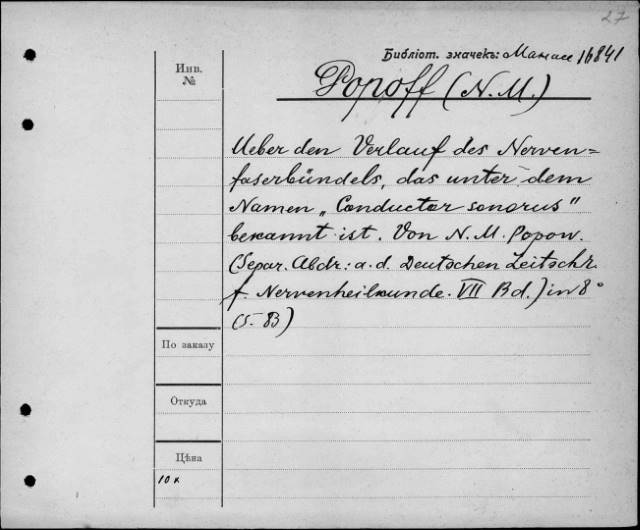 27
Библіот. значекъ: Манасс 16841
Инв.
№
Popoff (N. M.)
Ueber den Verlauf des Nerven=
faserbündels, das unter dem
Namen „Conductor sonorus"
bekannt ist. Von N. M. Popow.
(Separ. Abdr: a. d. Deutschen Zeitschr.
f. Nervenheilkunde. VII Bd.) in 8°
(S. 83)
По заказу
Откуда
Цѣна
10 к